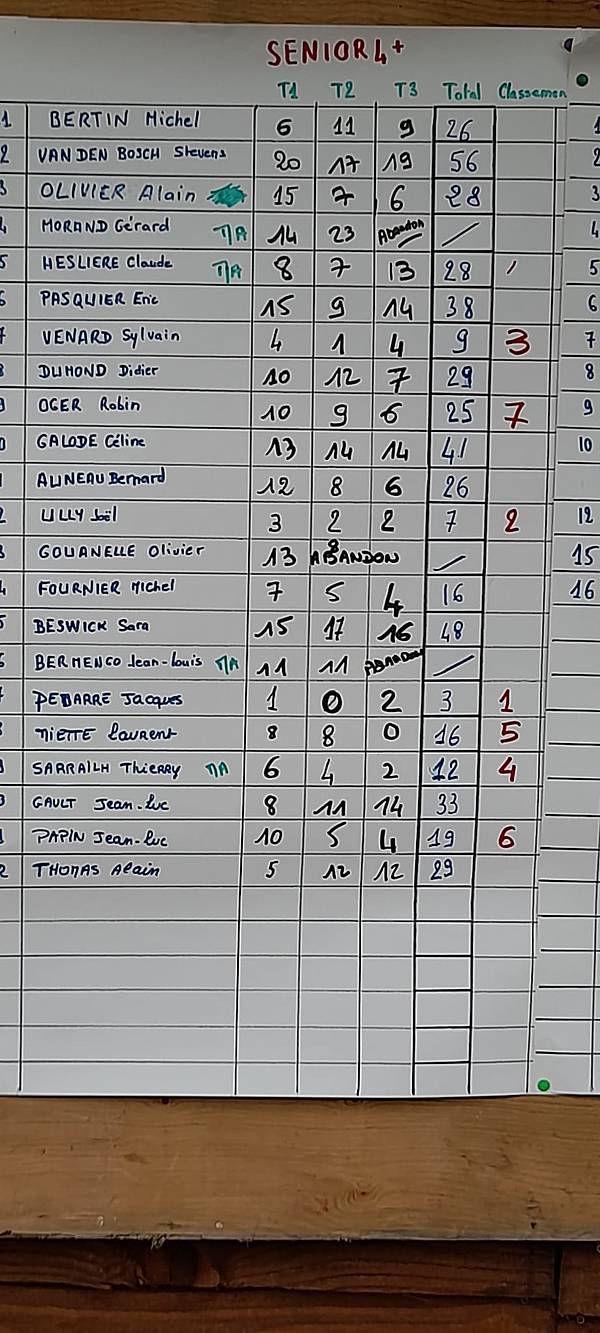 SENIOR 4+
T1 T2 T3 Total Classemen
1 BERTIN Michel 6 11 9 26 1
2 VAN DEN BOSCH Stevens 20 17 19 56 2
3 OLIVIER Alain 15 7 6 28 3
4 MORAND Gérard TA 14 23 Abandon / 4
5 HESLIERE Claude TA 8 7 13 28 5
6 PASQUIER Eric 15 9 14 38 6
7 VENARD Sylvain 4 1 4 9 3 7
8 DUMOND Didier 10 12 7 29 8
9 OGER Robin 10 9 6 25 7 9
0 GALODE Céline 13 14 14 41 10
1 AUNEAU Bernard 12 8 6 26
2 LILLY Joël 3 2 2 7 2 12
3 GOUANELLE Olivier 13 ABANDON / 15
4 FOURNIER Michel 7 5 4 16 16
5 BESWICK Sara 15 17 16 48
6 BERMENCO Jean-Louis TA 11 11 ABANDON /
7 PEDARRE Jacques 1 0 2 3 1
8 MIETTE Laurent 8 8 0 16 5
9 SARRAILH Thierry TA 6 4 2 12 4
0 GAULT Jean-Luc 8 11 14 33
1 PAPIN Jean-Luc 10 5 4 19 6
2 THOMAS Alain 5 12 12 29